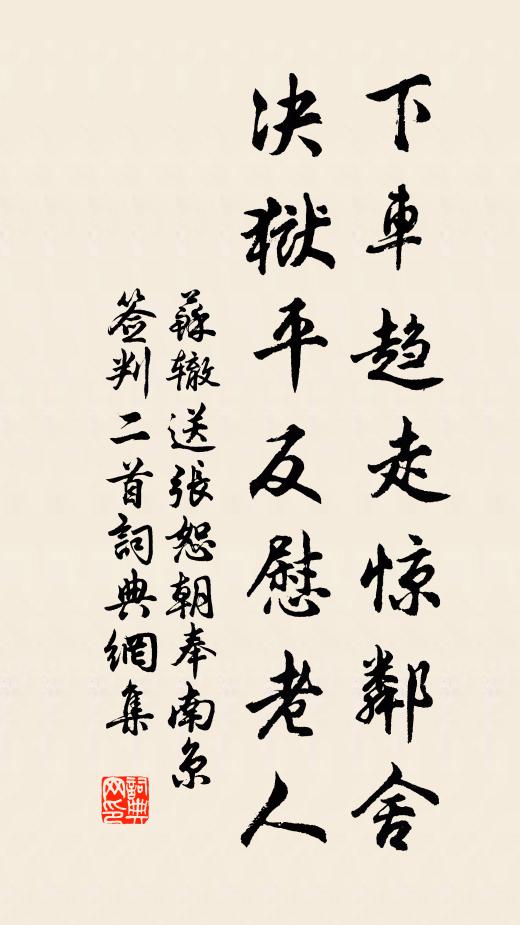 下車趋走惊鄰舍
决獄平反慰老人
蘇辙送張恕朝奉南京
签判二首詞典網集
詞典网印